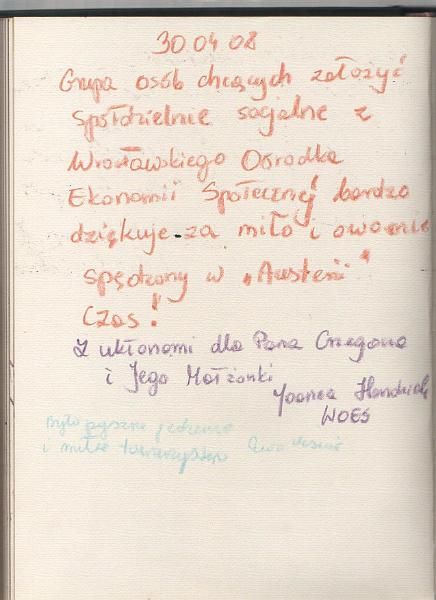 30 04 08
Grupa osób chcących założyć
Spółdzielnie socjalne z
Wrocławskiego Ośrodka
Ekonomii Społecznej bardzo
dziękuje za miło i owocnie
spędzony w „Austerii"
Czas!
Z ukłonami dla Pana Grzegorza
i Jego Małżonki
Joanna
WOES
Było pyszne jedzenie
i miłe towarzystwo Ewa